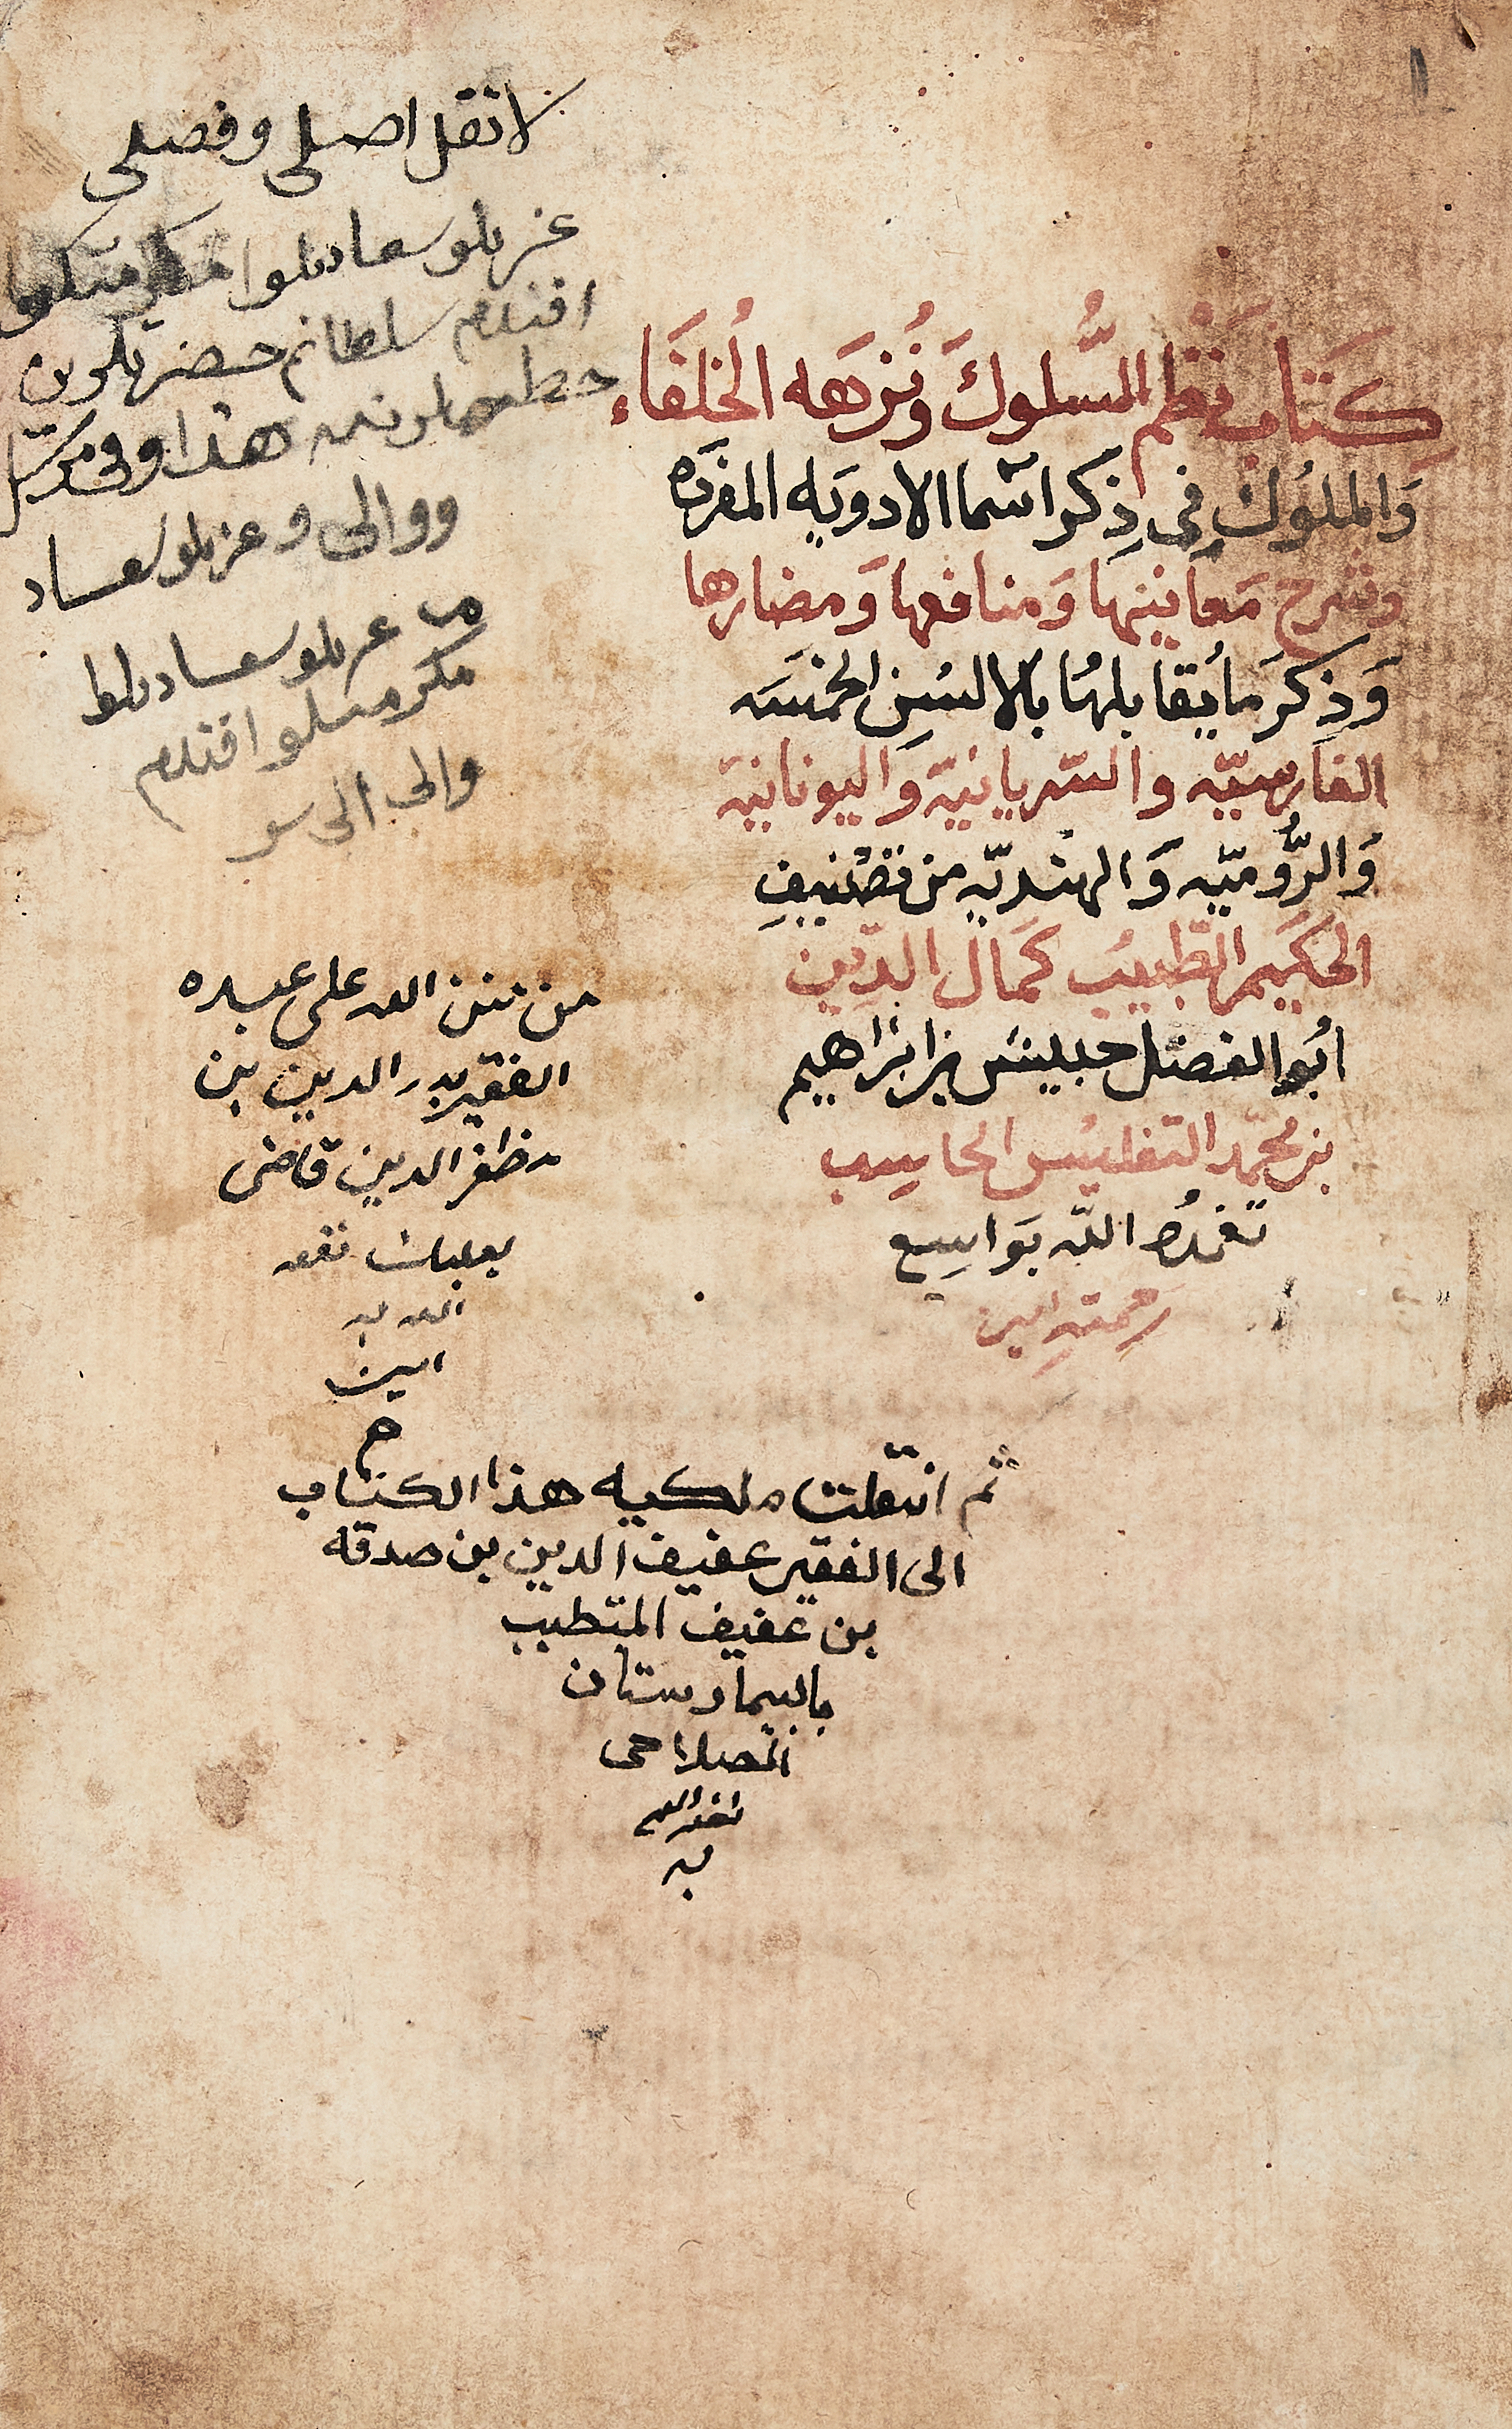 كِتَاب نَظم السُّلوكَ وَنُزهَه الُخلفَاء
وَالملوُك فِى ذِكر اسَما الادويَه المفرَده
وشرح مَعَانيَها وَمنافعها وَمضارها
وَذِكرَ مَا يُقابلهَا بالالسُن الخمسَه
الفَارسيّه والسّريانيّه وَاليونانية
وَالرُّوميّه وَالهنديّه من تصنيف
الحَكيم الطّبيب كمَال الدّين
أبو الفضل حبيش بن ابرَاهيم
بن محمّد التفليسُ الحاسِب
تغمدُه اللّه بَواسِع
رحمتهِ امين
لا تقل اصلى وفصلى
عزتلو سعادتلو
افندم سلطانم حضرتلرين
هذا
ووالى وعزتلو سعاد
عزتلو سعادتلو
مكرمتلو افندم
والى الى سو
من منن الله على عبده
الفقير بدر الدين بن
مظفر الدين قاضى
بعلبك نفعه
الله به
امين
م
ثم انتقلت ملكيه هذا الكتاب
الى الفقير عفيف الدين بن صدقه
بن عفيف المتطبب
بالبيمارستان
الصلاحى
نفعه الله
به